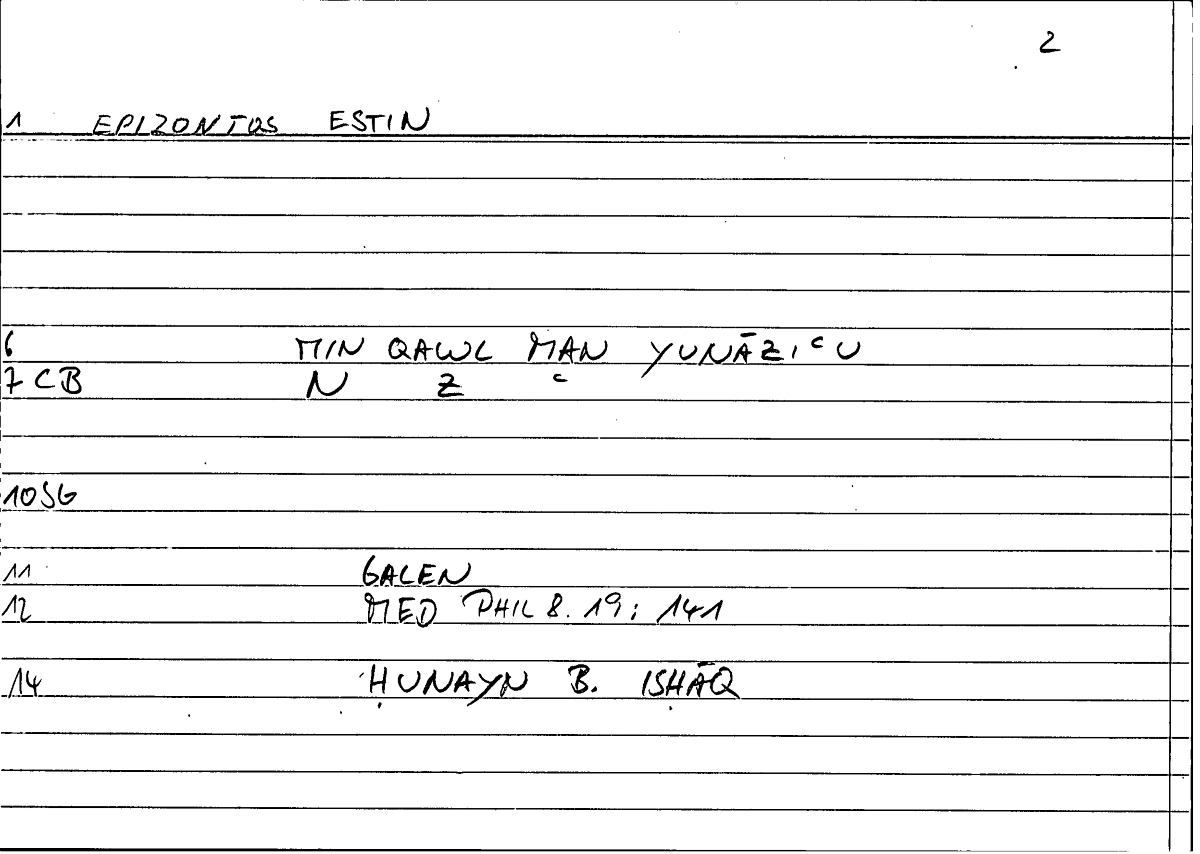 2
1 EPIZONTOS ESTIN
6 MIN QAWL MAN YUNĀZIʿU
7 CB N Z ʿ
10 SG
11 GALEN
12 MED PHIL 8. 19; 141
14 ḤUNAYN B. ISḤĀQ